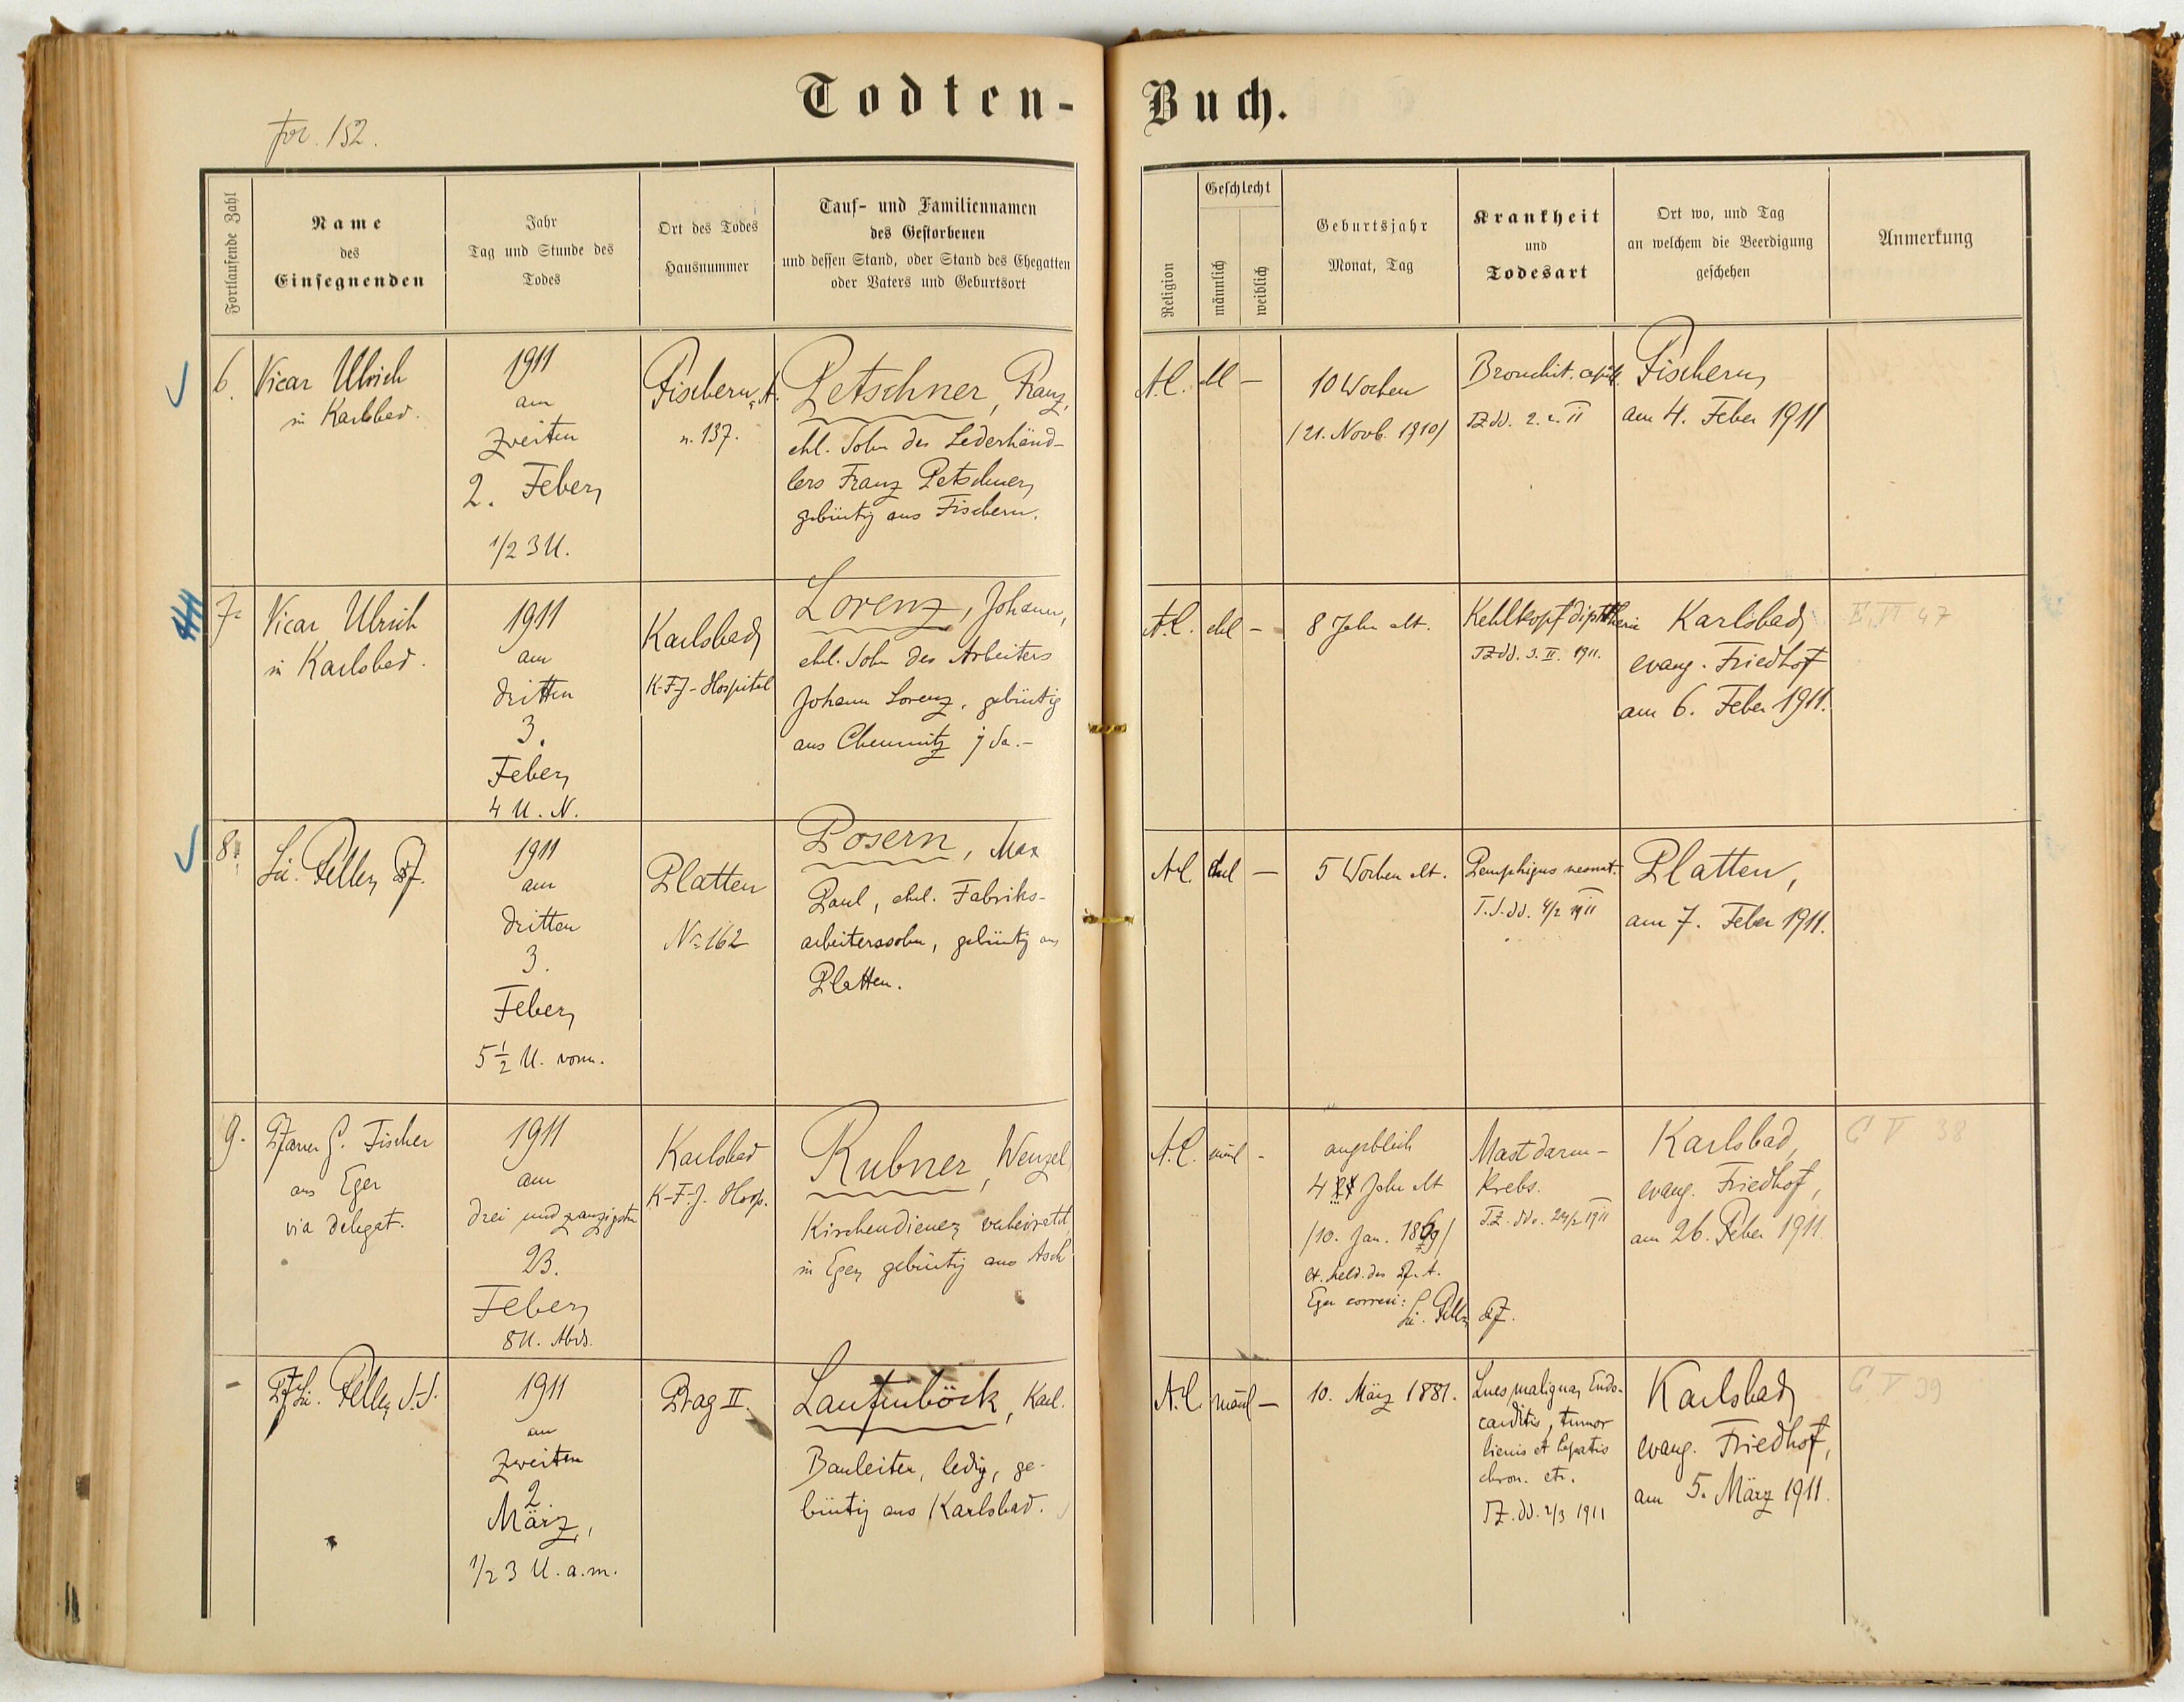 Todten-Buch.
fol. 152.
Fortlaufende Zahl
Name
des
Einsegnenden
Jahr
Tag und Stunde des
Todes
Ort des Todes
Hausnummer
Tauf- und Familiennamen
des Gestorbenen
und dessen Stand, oder Stand des Ehegatten
oder Vaters und Geburtsort
Religion
Geschlecht
männlich
weiblich
Geburtsjahr
Monat, Tag
Krankheit
und
Todesart
Ort wo, und Tag
an welchem die Beerdigung
geschehen
Anmerkung
6.
Vicar Ulrich
in Karlsbad.
1911
am
zweiten
2. Feber,
1/2 3 U.
Fischern,
n. 137.
Petschner, Franz,
ehl. Sohn des Lederhänd-
lers Franz Petschner,
gebürtig aus Fischern.
A.C.
—
10 Wochen
/21. Novb. 1910/
Bronchit. capill.
TZ dd. 2. II
Fischern,
am 4. Feber 1911
7.
Vicar Ulrich
in Karlsbad.
1911
am
dritten
3.
Feber,
4 U. N.
Karlsbad,
K-F-J-Hospital
Lorenz, Johann,
ehel. Sohn des Arbeiters
Johann Lorenz, gebürtig
aus Chemnitz
A.C.
—
8 Jahr alt.
Kehlkopfdiphtherie
TZ dd. 3. II. 1911.
Karlsbad,
evang. Friedhof
am 6. Feber 1911.
47
8.
Lic. Feller, Pf.
1911
am
dritten
3.
Feber,
5 1/2 U. vorm.
Platten
No 162
Posern, Max
Paul, ehel. Fabriks-
arbeiterssohn, gebürtig aus
Platten.
A.C.
—
5 Wochen alt.
Pemphigus neonat.
dd. 4/2 1911
Platten,
am 7. Feber 1911.
9.
Pfarrer G. Fischer
aus Eger
via delegat.
1911
am
drei und zwanzigsten
23.
Feber,
8 U. Abds.
Karlsbad
K-F-J. Hosp.
Rubner, Wenzel,
Kirchendiener, verheiratet
in Eger, gebürtig aus Asch
A.C.
-
angeblich
Jahr alt
/10. Jan. 1869/
Eger
Lic. Feller Pf.
Mastdarm-
krebs.
1911
Karlsbad,
evang. Friedhof,
am 26. Feber 1911.
G V 38
-
Pf. Lic. Feller
1911
am
zweiten
2.
März,
1/2 3 U. a.m.
Prag II.
Lautenböck, Karl.
Bauleiter, ledig, ge-
bürtig aus Karlsbad.
A.C.
männl —
10. März 1881.
Lues maligna, Endo-
carditis, tumor
lienis et hepatis
chron. etc.
TZ. dd. 2/3 1911
Karlsbad,
evang. Friedhof,
am 5. März 1911.
G V 39